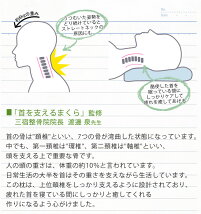 うつむいた姿勢を
とり続けていると
ストレートネックの
原因にも
酷使した首を
眠っている間に
しっかりケアして
疲れを癒してあげる
■「首を支えるまくら」監修
三宿整骨院院長 渡邉 泉先生
首の骨は“頸椎”といい、7つの骨が湾曲した状態になっています。
中でも、第一頸椎は“環椎”、第二頸椎は“軸椎”といい、
頭を支える上で重要な骨です。
人の頭の重さは、体重の約10%と言われています。
日常生活の大半を首はその重さを支えながら生活しています。
この枕は、上位頸椎をしっかり支えるように設計されており、
疲れた首を寝ている間にしっかりと癒してくれる
作りになるよう心がけました。